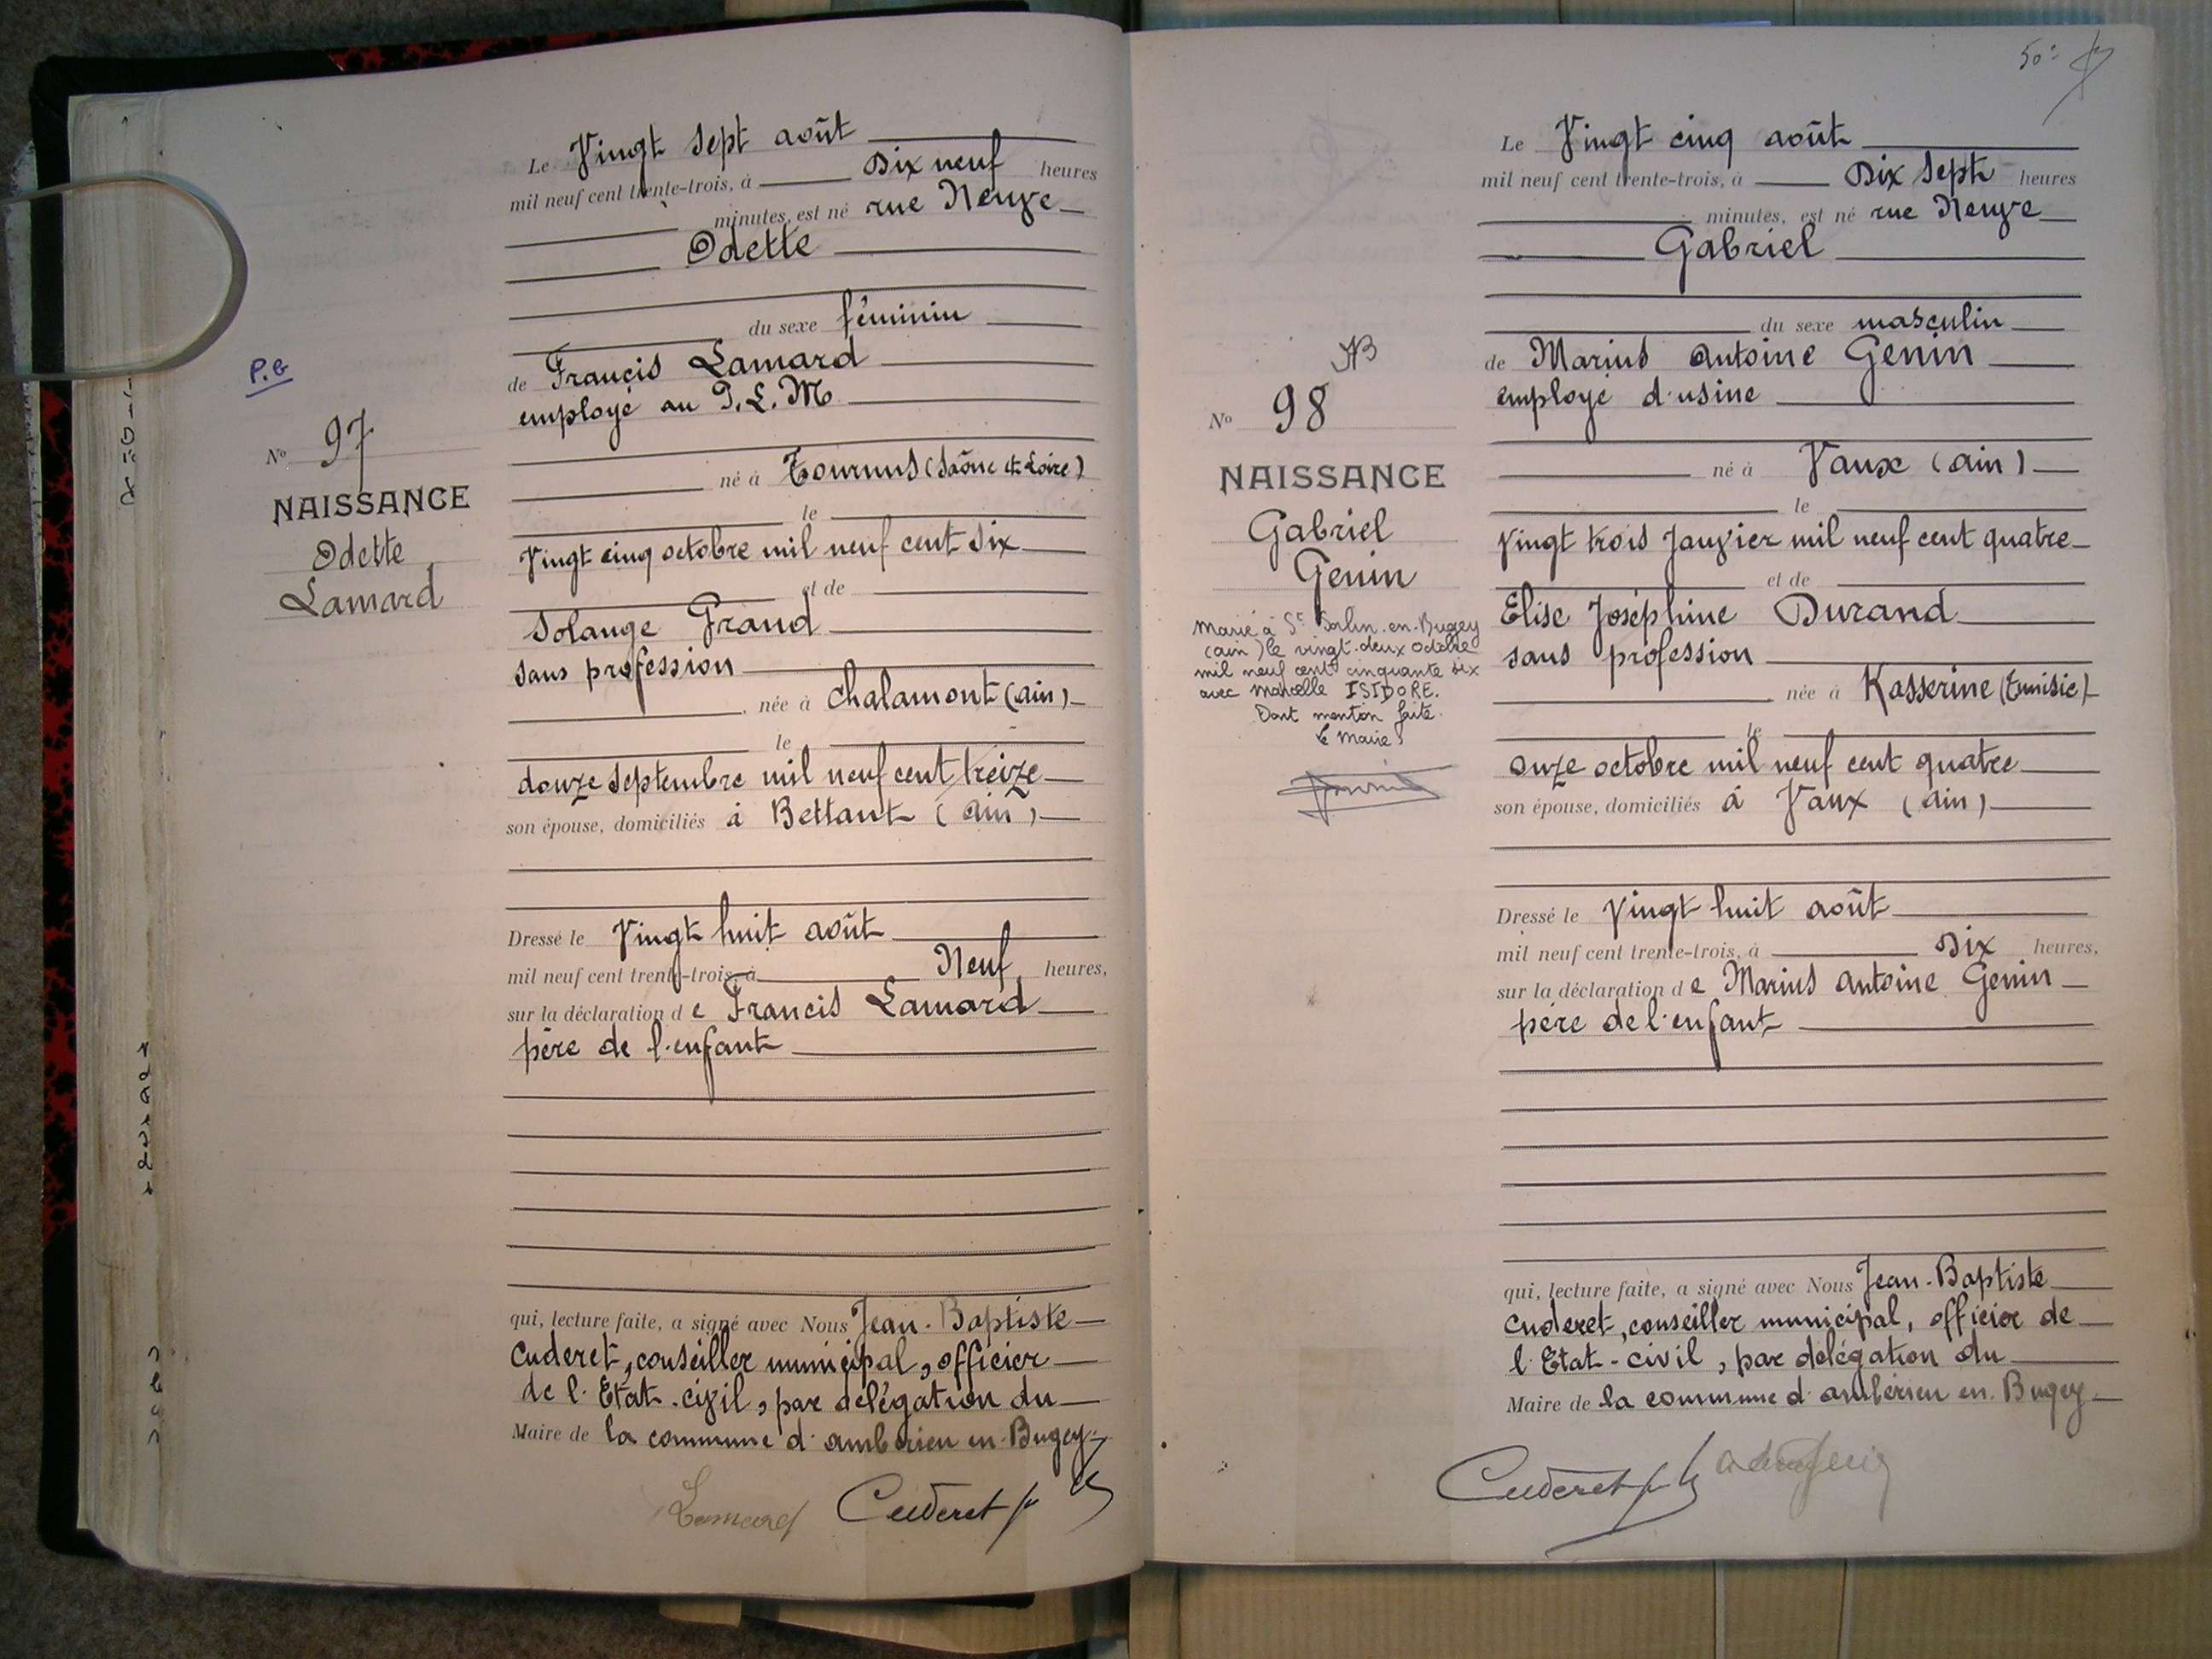 P.G
N° 97
NAISSANCE
Odette
Lamard
Le Vingt sept août
mil neuf cent trente-trois, à Dix neuf heures
minutes, est né rue Neuve
Odette
du sexe féminin
de Francis Lamard
employé au P.L.M
né à Tournus (Saône et Loire)
le
Vingt cinq octobre mil neuf cent six
et de
Solange Grand
sans profession
née à Chalamont (ain)
le
douze septembre mil neuf cent treize
son épouse, domiciliés à Bettant (ain)
Dressé le Vingt huit août
mil neuf cent trente-trois, à Neuf heures,
sur la déclaration de Francis Lamard
père de l'enfant
qui, lecture faite, a signé avec Nous Jean-Baptiste
Cuderet, conseiller municipal, officier
de l'Etat-civil, par délégation du
Maire de la commune d'ambérieu en-Bugey
Lamard Cuderet
50e
N° 98
NAISSANCE
Gabriel
Genin
Marié à St Sorlin-en-Bugey
(ain) le vingt-deux octobre
mil neuf cent cinquante six
avec Marcelle ISIDORE.
Dont mention faite.
Le Maire
Le Vingt cinq août
mil neuf cent trente-trois, à Dix sept heures
minutes, est né rue Neuve
Gabriel
du sexe masculin
de Marius antoine Genin
employé d'usine
né à Vaux (ain)
le
Vingt trois Janvier mil neuf cent quatre
et de
Elise Joséphine Durand
sans profession
née à Kasserine (Tunisie)
le
onze octobre mil neuf cent quatre
son épouse, domiciliés à Vaux (ain)
Dressé le Vingt huit août
mil neuf cent trente-trois, à Dix heures,
sur la déclaration de Marius antoine Genin
père de l'enfant
qui, lecture faite, a signé avec Nous Jean-Baptiste
Cuderet, conseiller municipal, officier de
l'Etat-civil, par délégation du
Maire de la commune d'ambérieu en-Bugey
Cuderet